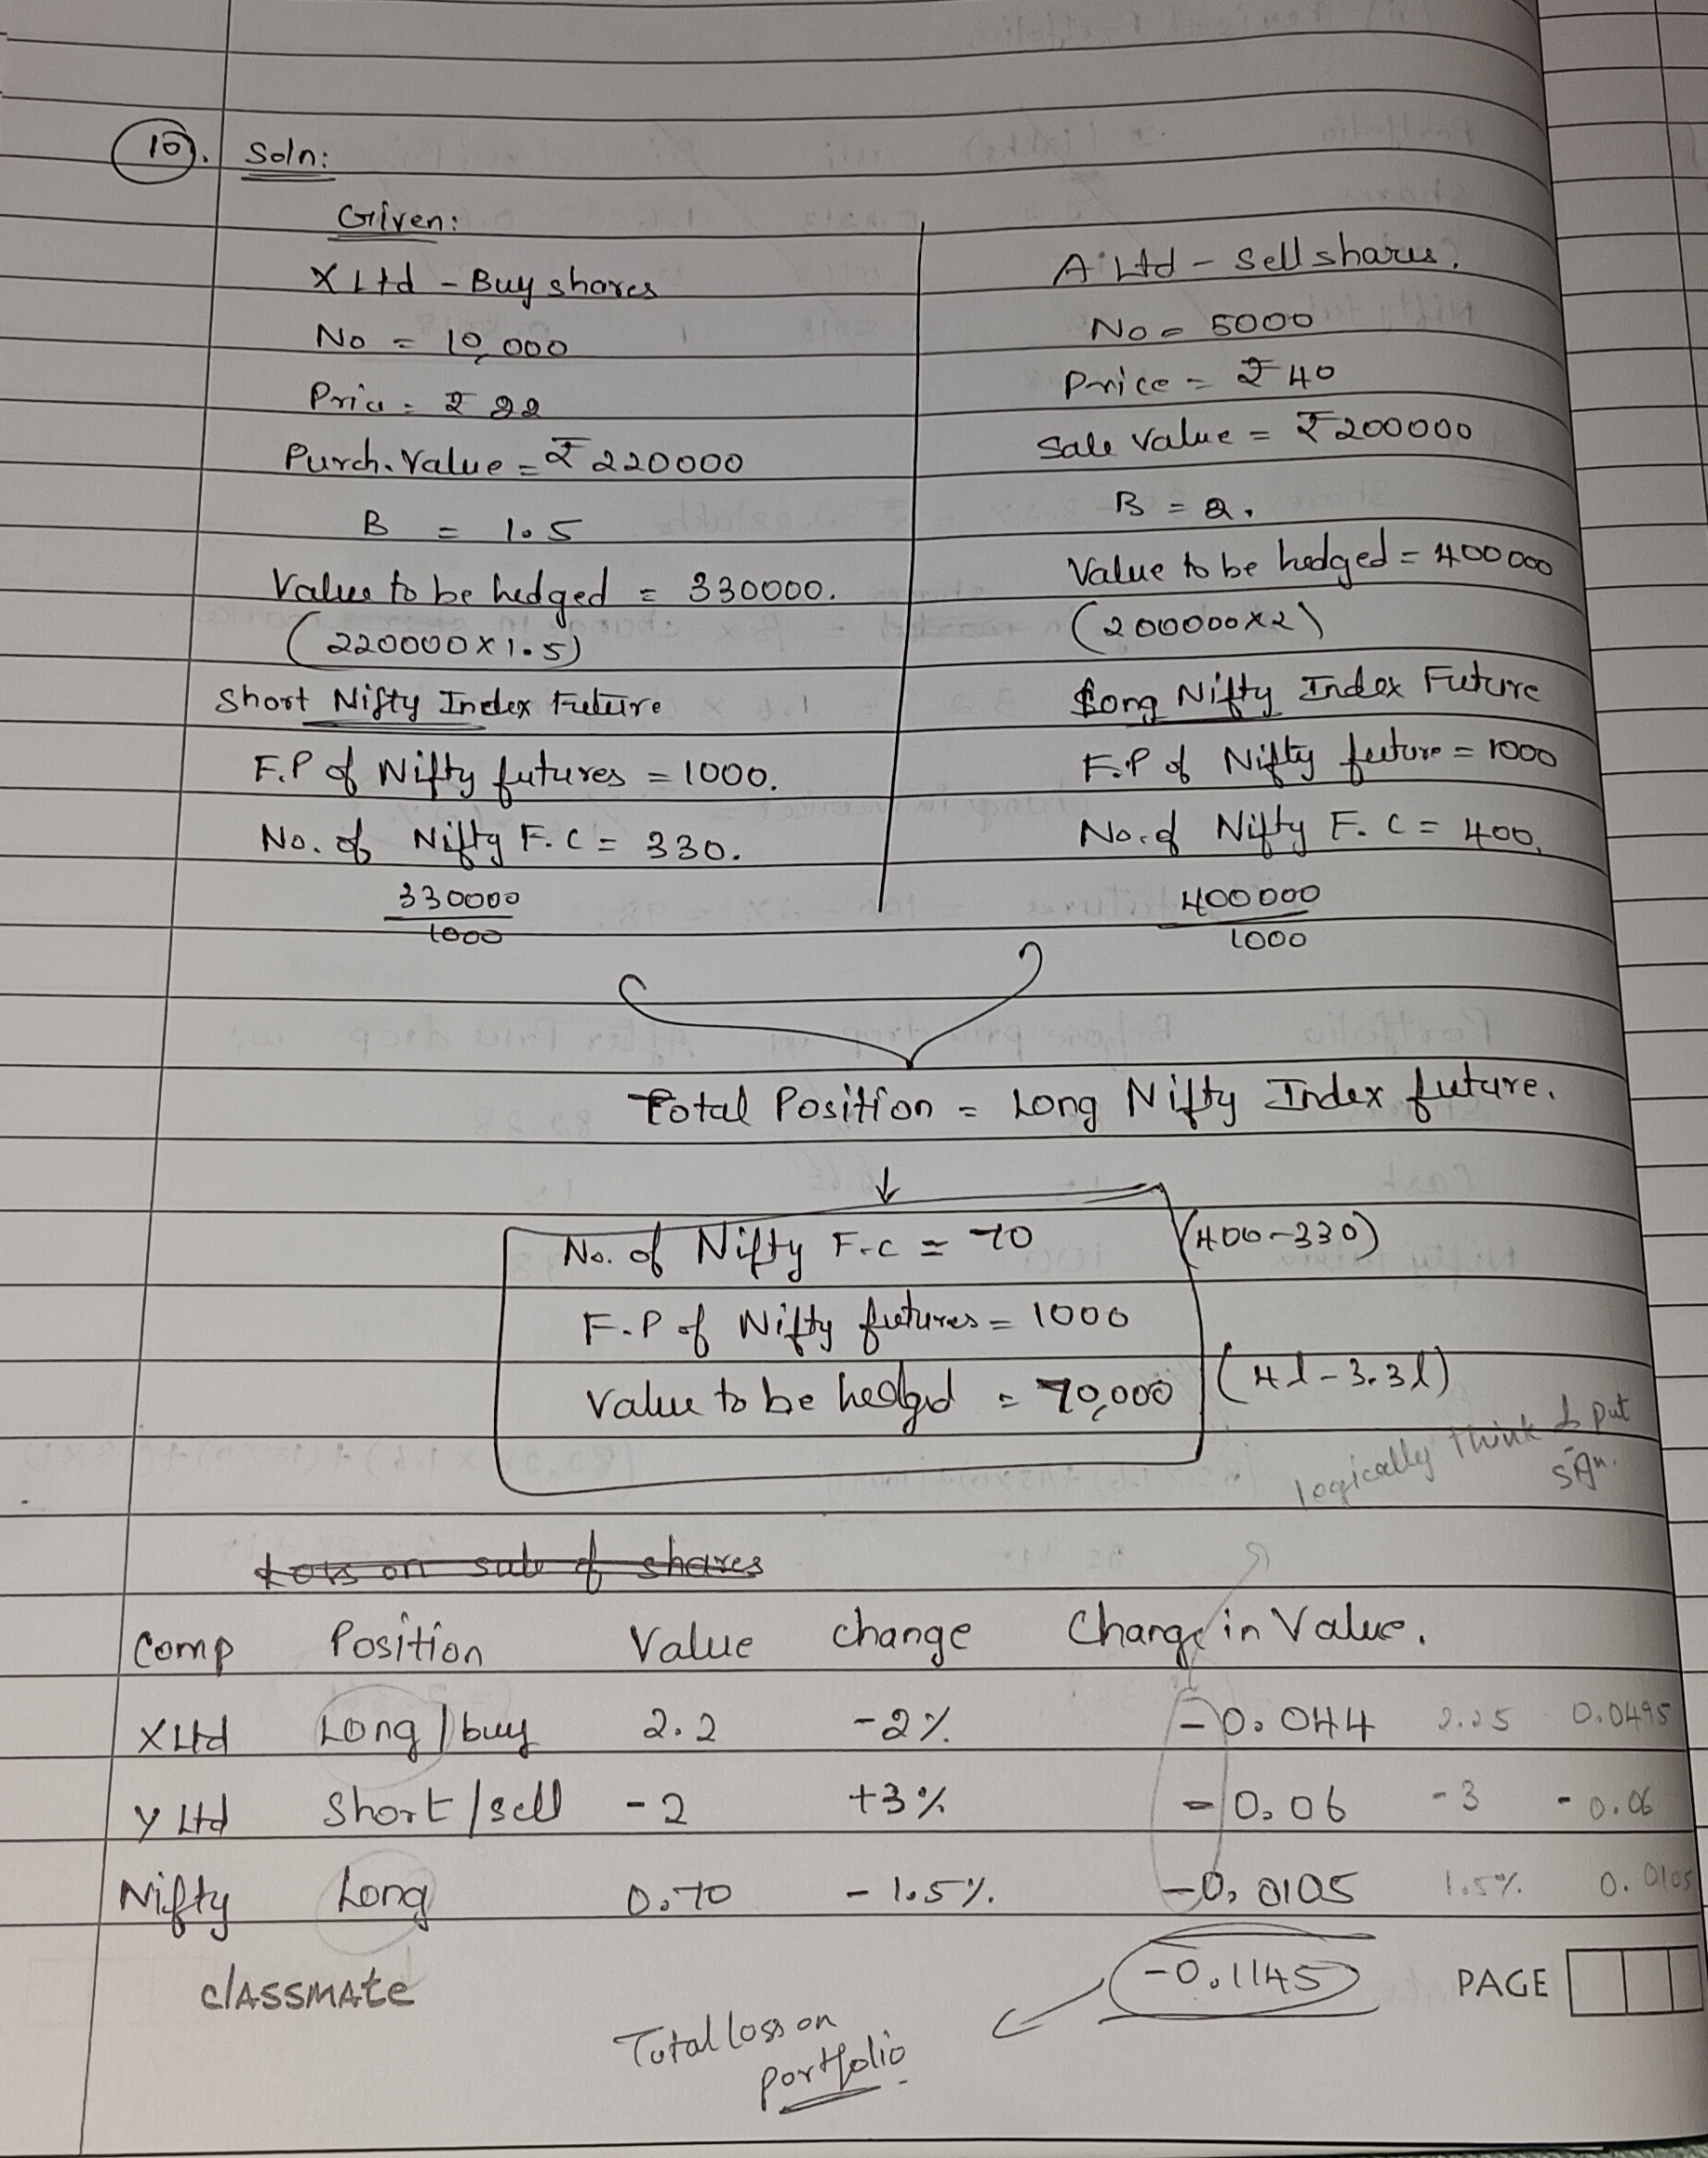 10. Soln:
Given:
X Ltd - Buy shares
No = 10,000
Price = ₹ 22
Purch. Value = ₹ 220000
B = 1.5
Value to be hedged = 330000.
(220000 x 1.5)
Short Nifty Index Future
F.P of Nifty futures = 1000.
No. of Nifty F.C = 330.
330000
1000
A Ltd - Sell shares.
No = 5000
Price = ₹ 40
Sale Value = ₹ 200000
B = 2.
Value to be hedged = 400000
(200000 x 2)
Long Nifty Index Future
F.P of Nifty future = 1000
No. of Nifty F.C = 400.
400000
1000
Total Position = Long Nifty Index future.
↓
No. of Nifty F.C = 70 (400-330)
F.P of Nifty futures = 1000
Value to be hedged = 70,000 (4l - 3.3l)
logically think & put
sign.
Loss on sale of shares
Comp Position Value change Change in Value.
X Ltd Long / buy 2.2 -2% -0.044 2.25 0.0495
Y Ltd Short / sell -2 +3% -0.06 -3 -0.06
Nifty Long 0.70 -1.5% -0.0105 1.5% 0.0105
-0.1145
classmate
PAGE
Total loss on
portfolio.